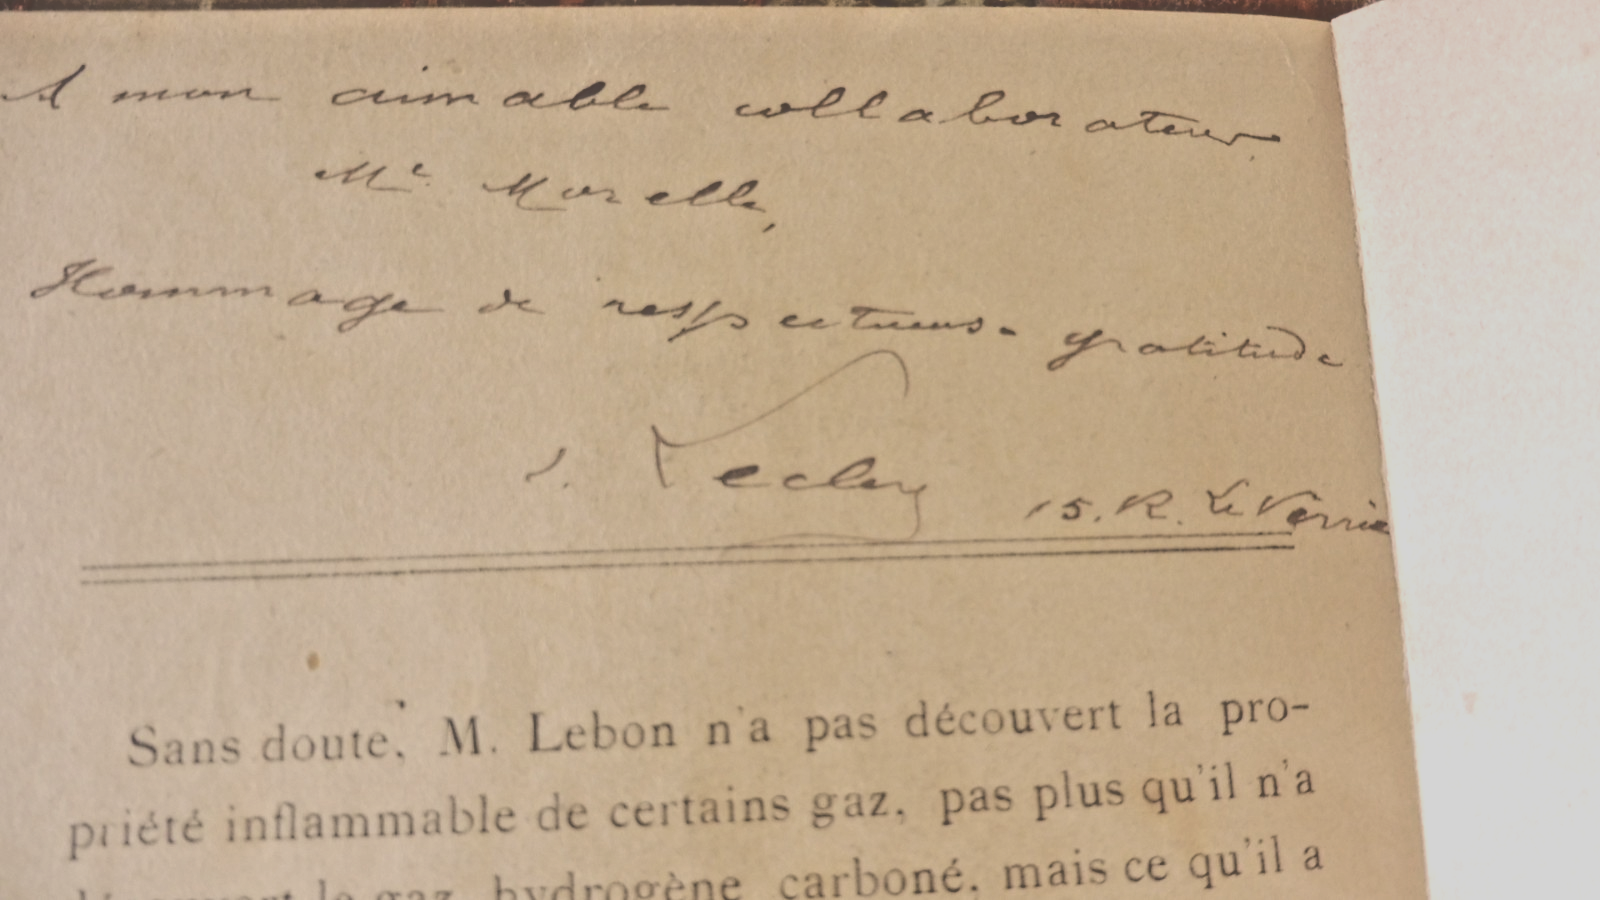 A mon aimable collaborateur
Mr. Morelle,
Hommage de respectueuse gratitude
J. Leclerc 15. R. Le Verrie
Sans doute, M. Lebon n'a pas découvert la pro-
priété inflammable de certains gaz, pas plus qu'il n'a
le gaz hydrogène carboné, mais ce qu'il a